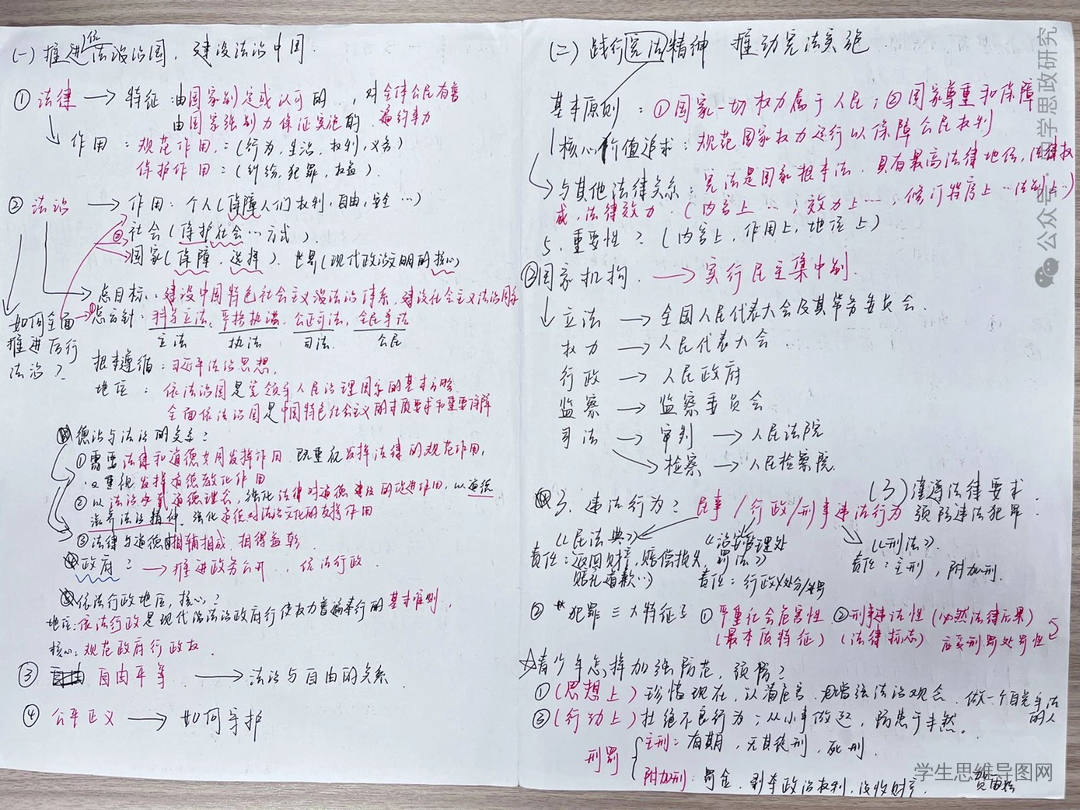 (一) 推进依法治国，建设法治中国.
① 法律 → 特征：由国家制定或认可的，对全体公民有普遍约束力
由国家强制力保证实施的
作用：规范作用：(行为，生活，权利，义务)
保护作用：(纠纷，犯罪，权益)
② 法治 → 作用：个人(保障人们权利，自由，安全…)
社会(维护社会…方式).
国家(保障，选择). 世界(现代政治文明的核心)
总目标：建设中国特色社会主义法治体系，建设社会主义法治国家
如何全面推进厉行法治？
总方针：科学立法，严格执法，公正司法，全民守法
立法 执法 司法 公民
根本遵循：习近平法治思想.
地位：依法治国是党领导人民治理国家的基本方略
全面依法治国是中国特色社会主义的本质要求和重要保障
德治与法治的关系？
①需要法律和道德共同发挥作用 既重视发挥法律的规范作用，
又重视发挥道德教化作用
② 以法治 道德理念，强化法律对道德建设的促进作用，以道德
滋养法治精神，强化道德对法治文化的支撑作用
③法律与道德相辅相成，相得益彰
政府？→ 推进政务公开，依法行政
依法行政地位，核心？
地位：依法行政是现代法治政府行使权力普遍奉行的基本准则，
核心：规范政府行政权.
③ 自由平等 → 法治与自由的关系.
④ 公平正义 → 如何守护
(二) 践行宪法精神 推动宪法实施
基本原则：①国家一切权力属于人民；②国家尊重和保障
核心价值追求：规范国家权力运行以保障公民权利
与其他法律关系：宪法是国家根本法，具有最高法律地位，法律权
威，法律效力.(内容上…；效力上…，修订程序上…法制上…)
5. 重要性？(内容上，作用上，地位上)
②国家机构 → 实行民主集中制.
立法 → 全国人民代表大会及其常务委员会.
权力 → 人民代表大会
行政 → 人民政府
监察 → 监察委员会
司法 → 审判 → 人民法院
检察 → 人民检察院.
(3) 遵循法律要求
3. 违法行为？民事/行政/刑事违法行为 预防违法犯罪.
《民法典》 《治安管理处罚法》 《刑法》.
责任：返回财产，赔偿损失 赔礼道歉…) 责任：行政处分/处罚 责任：主刑，附加刑.
2 犯罪三大特征？ ①严重社会危害性 ②刑事违法性 (必然法律后果)
(最本质特征) (法律标志) 应受刑罚处罚性
☆青少年怎样加强防范，预防？
①(思想上) 珍惜现在，认清危害，增强法治观念，做一个自觉守法的人
②(行动上) 杜绝不良行为；从小事做起，防患于未然.
刑罚 主刑：有期，无期徒刑，死刑.
附加刑：罚金，剥夺政治权利，没收财产.
公众号·中学思政研究
学生思维导图网